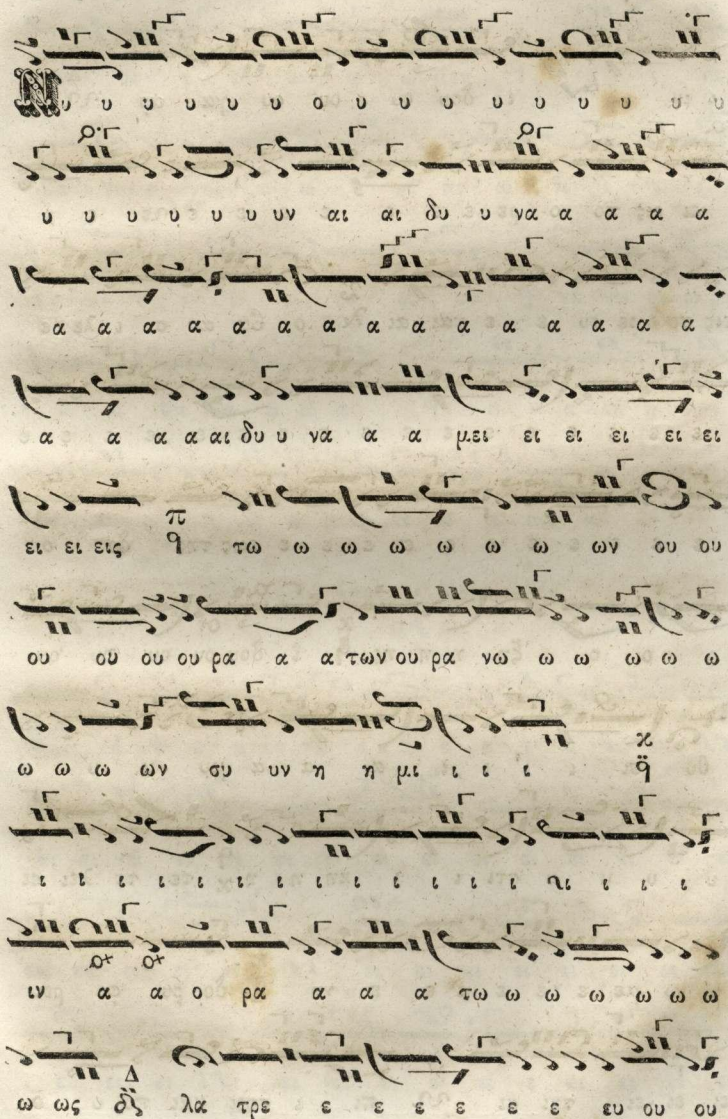 Νυ υ υ υ υ υ ο υ υ υ υ υ υ υ υ υ
υ υ υ υ υ υ υν αι αι δυ υ να α α α α α
α α α α α α α α α α α α α α α
α α α α αι δυ υ να α α μει ει ει ει ει ει
ει ει εις π q τω ω ω ω ω ω ω ω ων ου ου
ου ου ου ου ρα α α των ου ρα νω ω ω ω ω ω
ω ω ω ων συ υν η η μι ι ι ι κ q
ι ι ι ι ι ι ι ι ι ι ι ι ι ι ι ι ι
ιν α α ο ρα α α α α τω ω ω ω ω ω ω
ω ως Δ δι λα τρε ε ε ε ε ε ε ευ ου ου